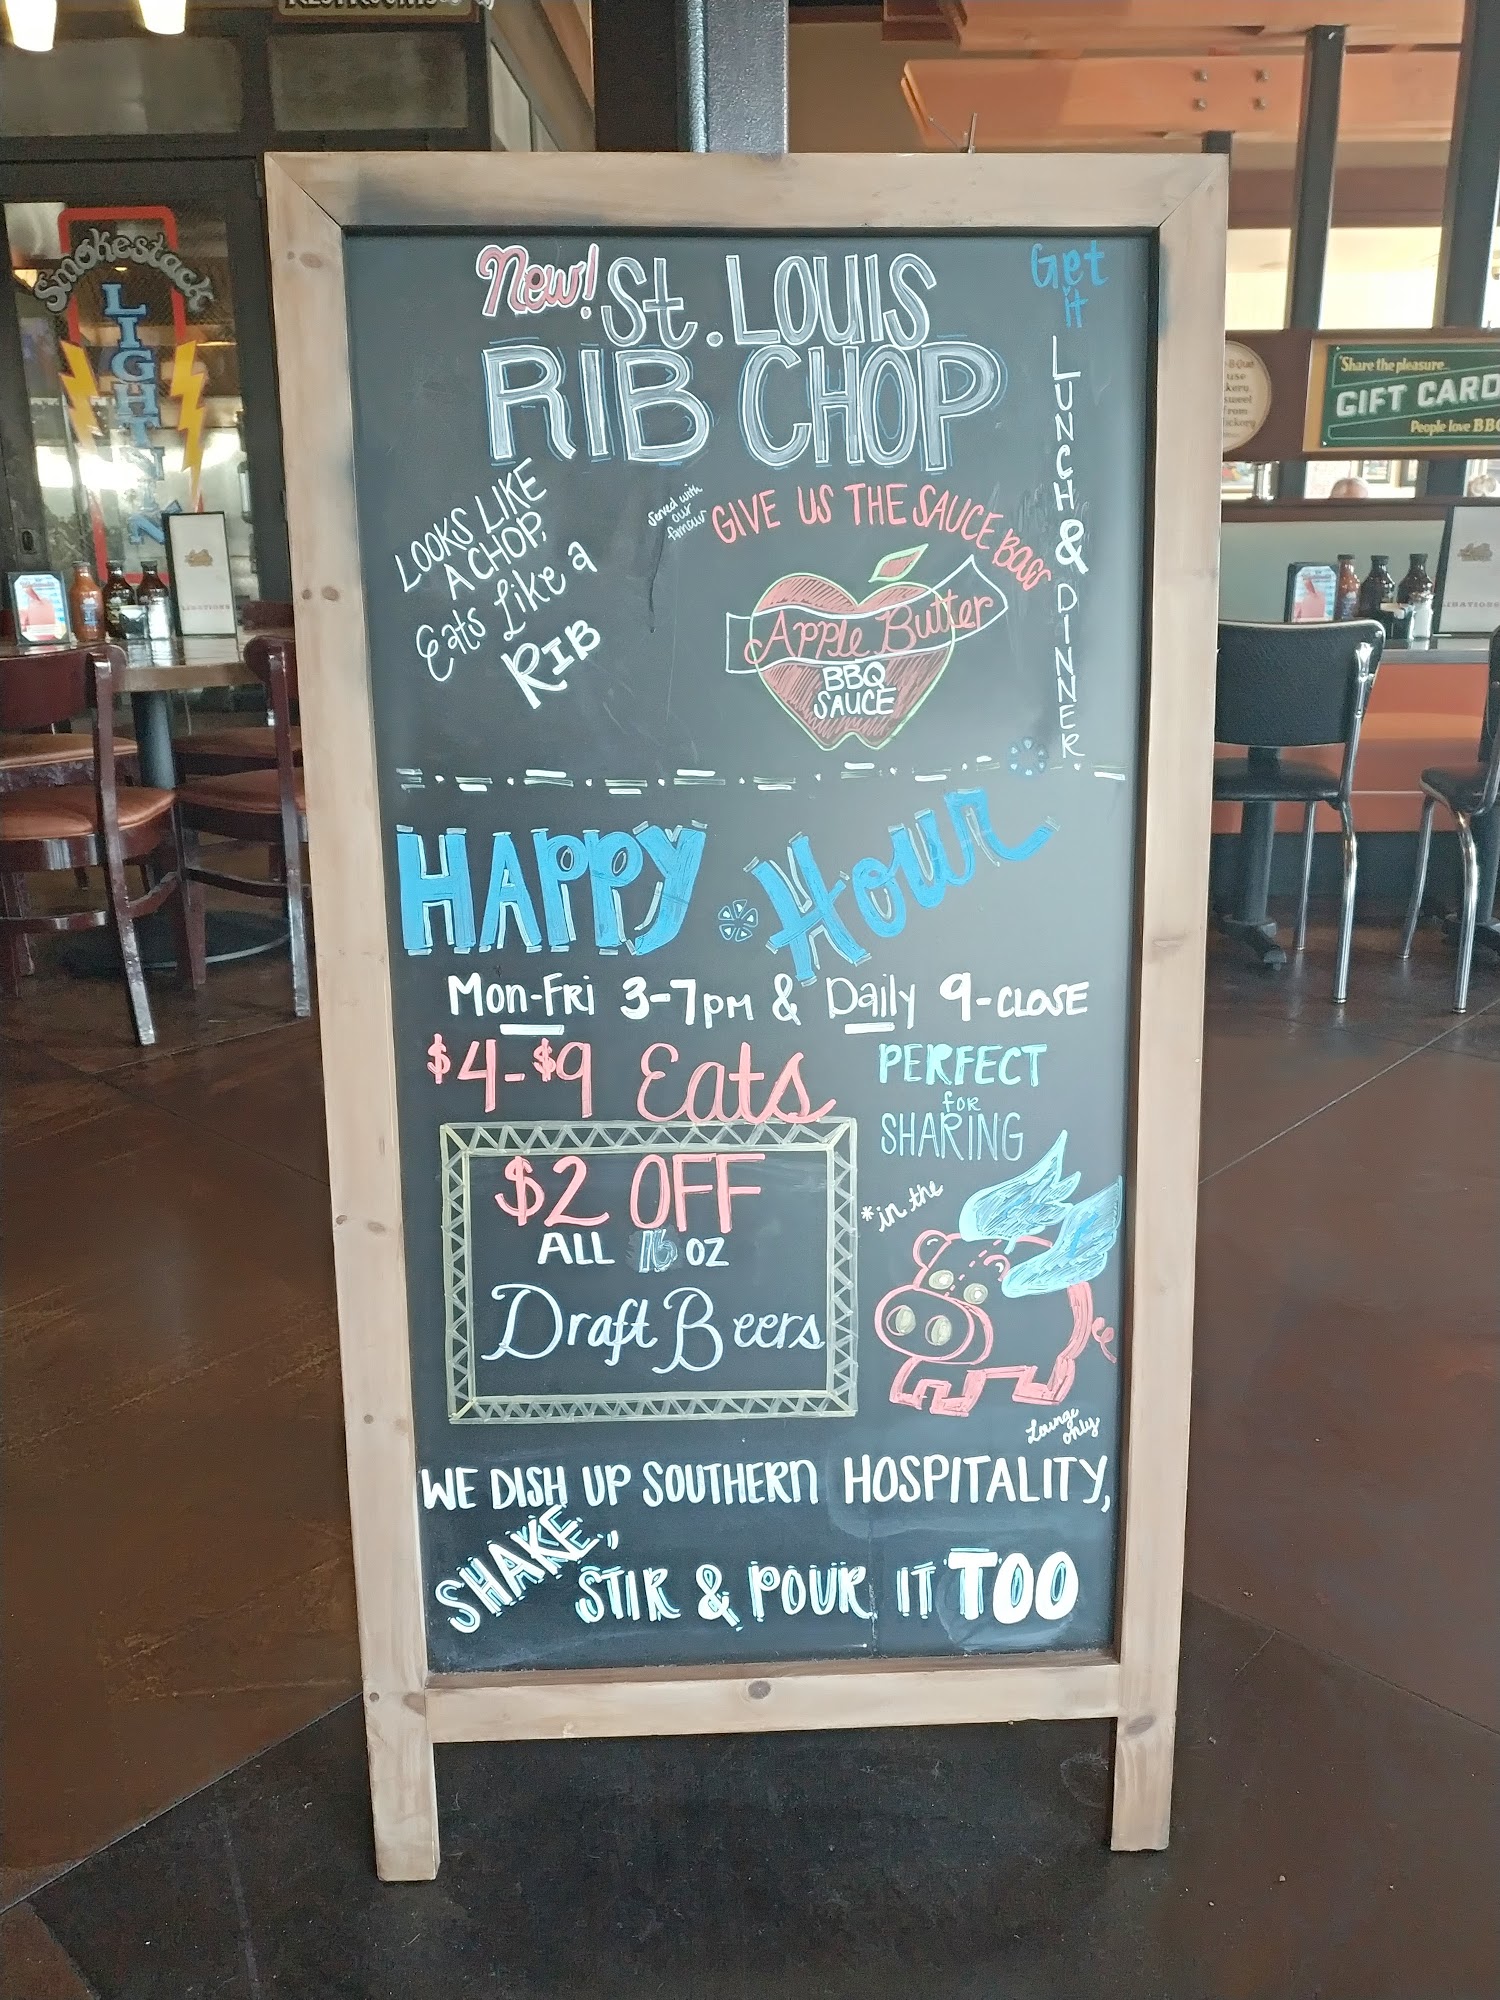 RESTROOMS
Smokestack
LIGHTNIN
New! St. Louis
RIB CHOP
Get
it
LUNCH & DINNER
LOOKS LIKE
A CHOP,
Eats Like a
RIB
Served with
our
famous
GIVE US THE SAUCE BOSS
Apple Butter
BBQ
SAUCE
HAPPY Hour
Mon-Fri 3-7pm & Daily 9-CLOSE
$4-$9 Eats
PERFECT
for
SHARING
$2 OFF
ALL 16 OZ
Draft Beers
*in the
Lounge
only
WE DISH UP SOUTHERN HOSPITALITY,
SHAKE,
STIR & POUR IT TOO
Share the pleasure...
GIFT CARD
People love BB
LIBATIONS
LIBATIONS